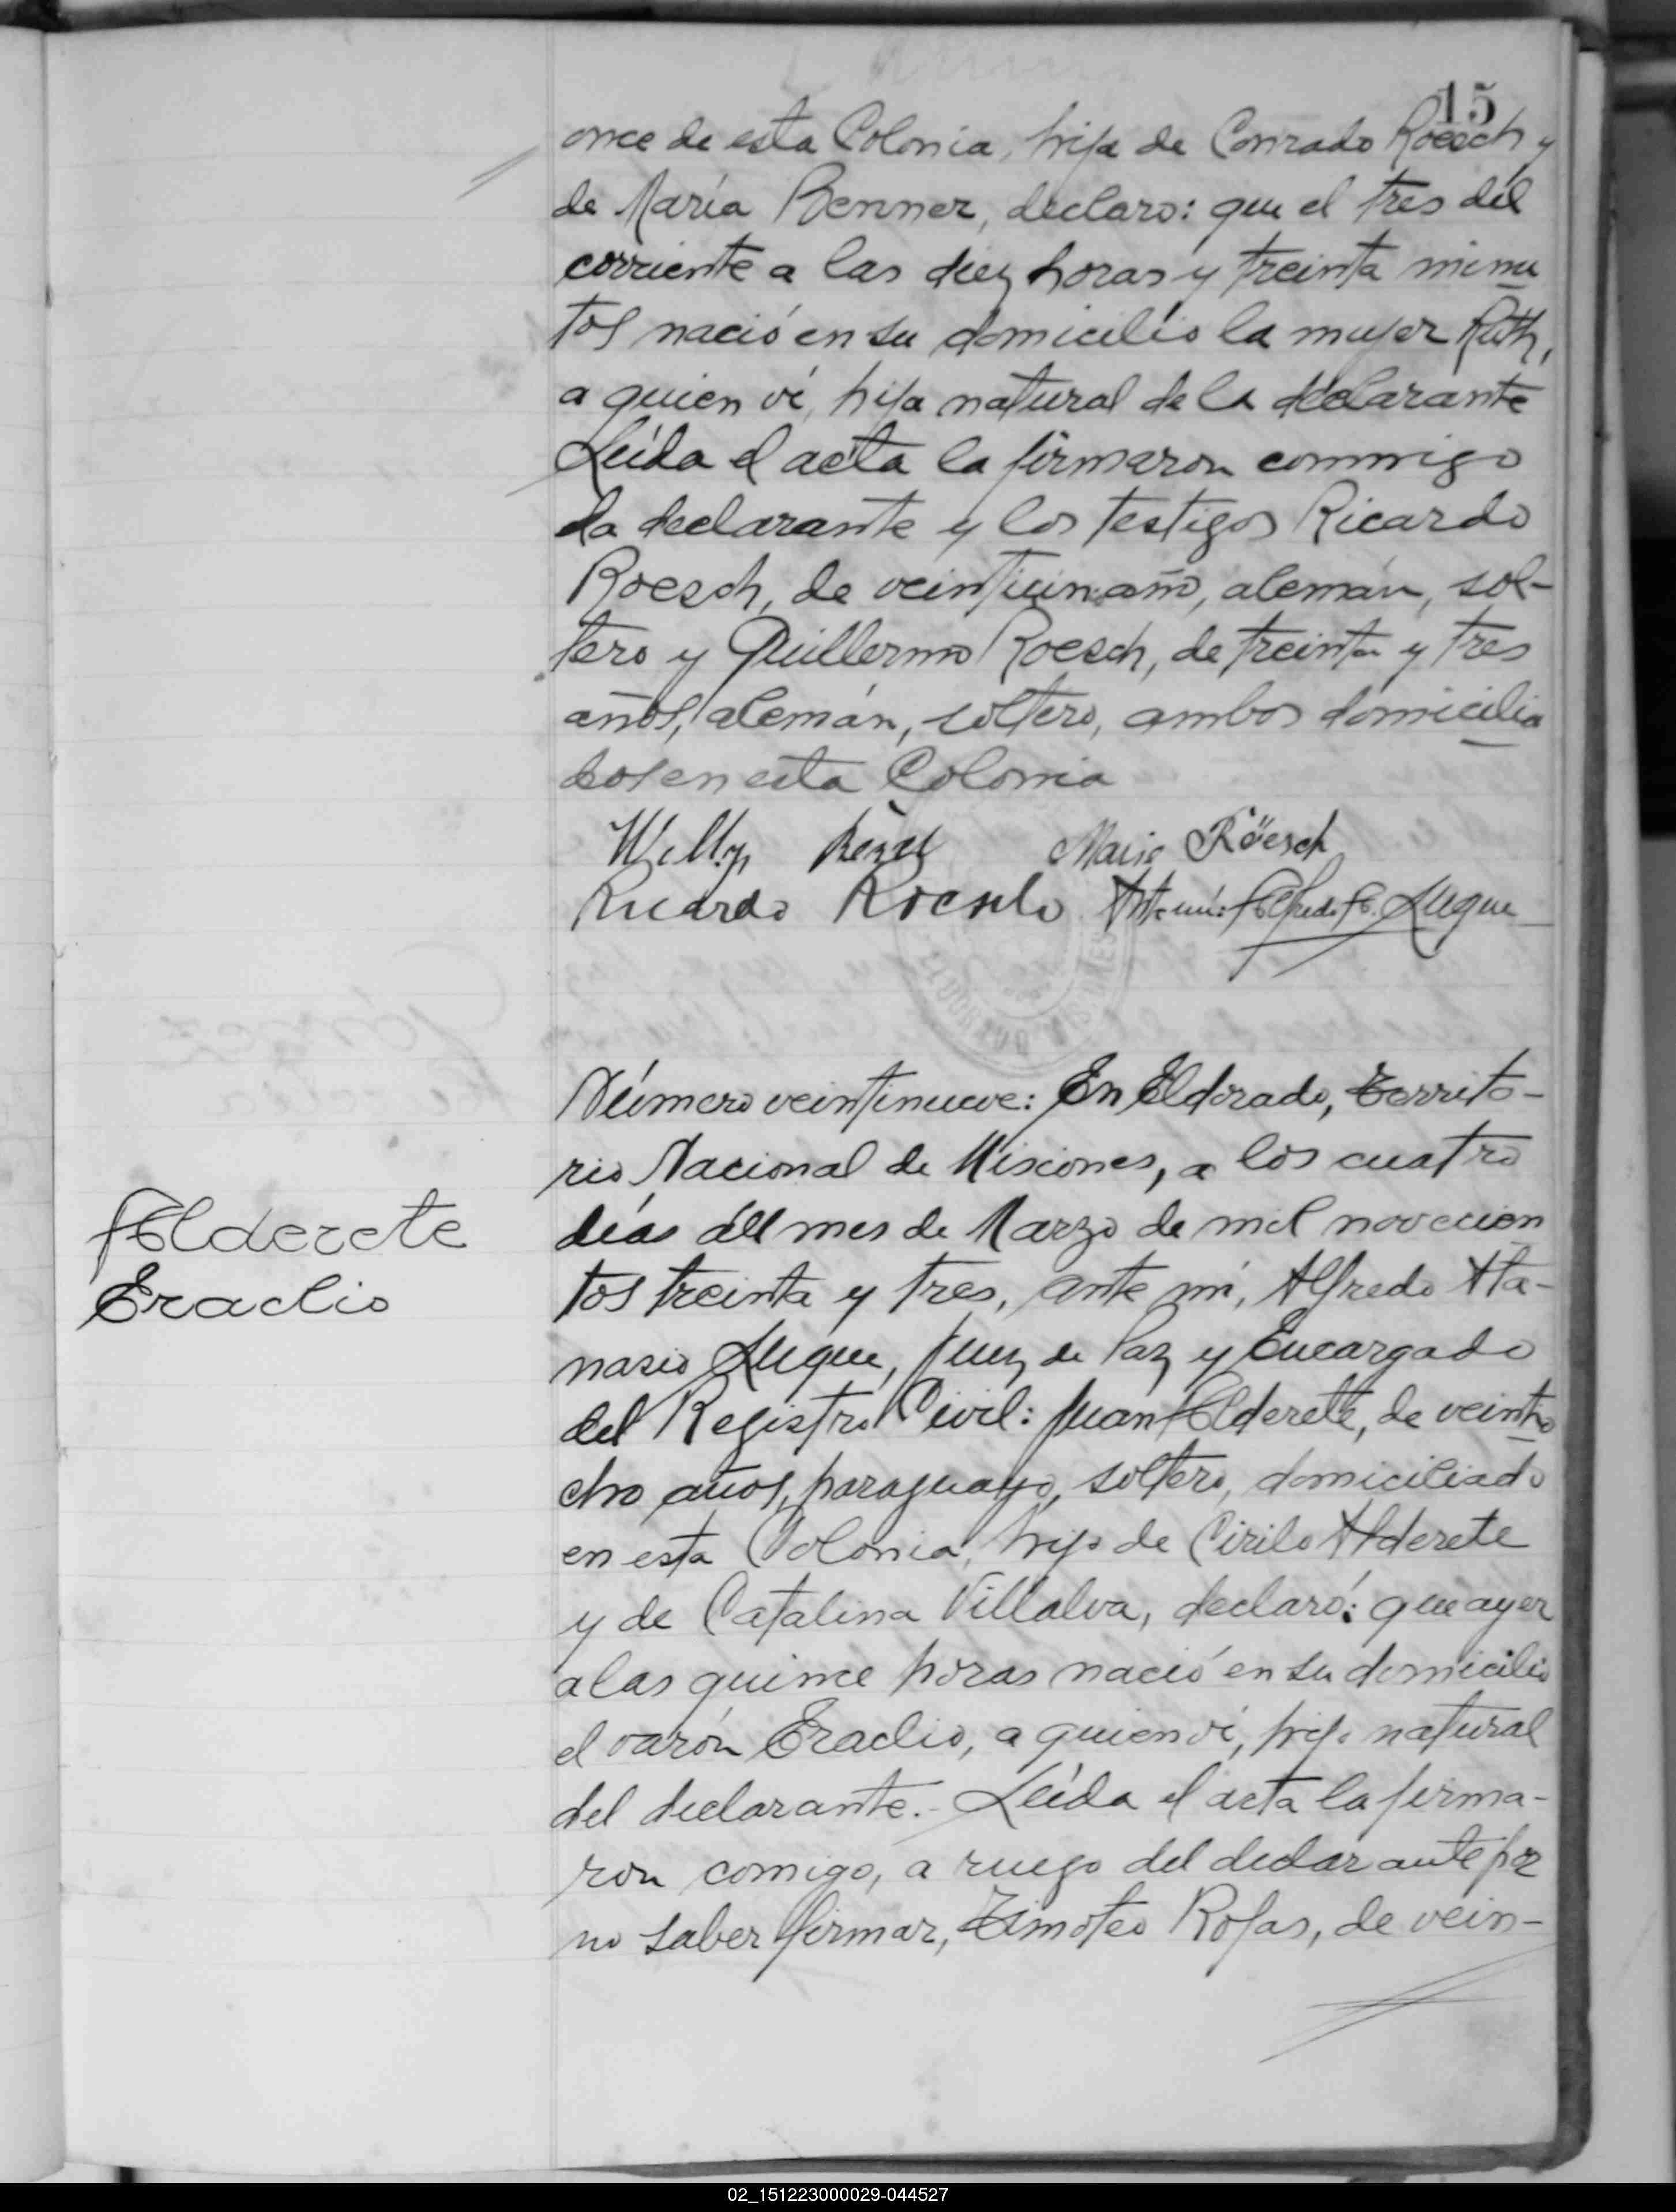 15
once de esta Colonia, hija de Conrado Roesch y
de María Benner, declaro: que el tres del
corriente a las diez horas y treinta minu
tos nació en su domicilio la mujer Ruth,
a quien ví, hija natural de la declarante
Leída el acta la firmaron conmigo
la declarante y los testigos Ricardo
Roesch, de veintiun año, alemán, sol-
tero y Guillermo Roesch, de treinta y tres
años, alemán, soltero, ambos domicilia
dos en esta Colonia
Willy Maria Röesch
Ricardo Roesch Ante mí: Alfredo A. Luque
Número veintinueve: En Eldorado, Territo-
rio Nacional de Misiones, a los cuatro
días del mes de Marzo de mil novecien
tos treinta y tres, ante mí, Alfredo Ata-
nasio Luque, Juez de Paz y Encargado
Alderete
Eraclio
del Registro Civil: Juan Alderete, de veintio
cho años, paraguayo, soltero, domiciliado
en esta Colonia, hijo de Cirilo Alderete
y de Catalina Villalva, declaró: que ayer
a las quince horas nació en su domicilio
el varón Eraclio, a quien ví, hijo natural
del declarante.- Leída el acta la firma-
ron comigo, a ruego del declarante por
no saber firmar, Timoteo Rojas, de vein-
02_151223000029-044527